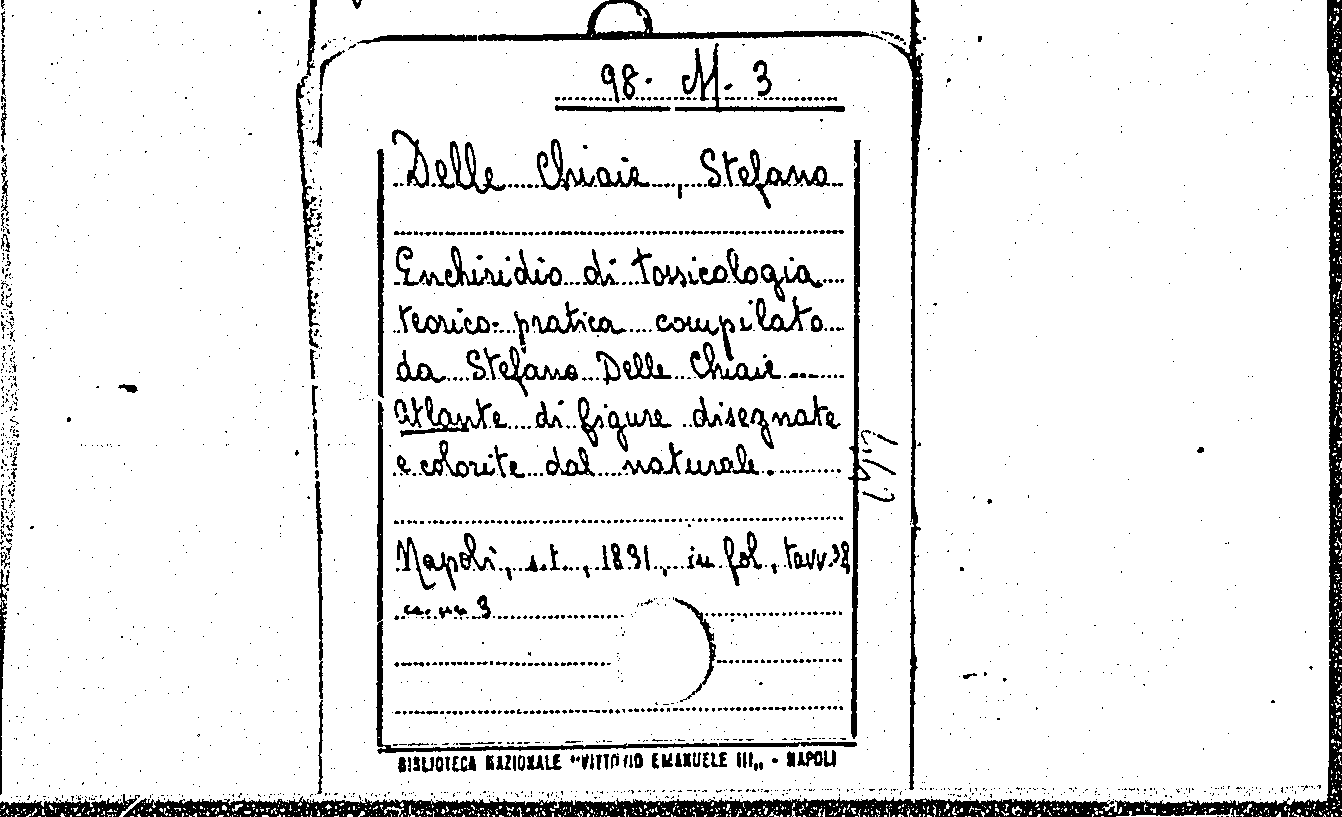 98. M. 3
Delle Chiaie, Stefano
Enchiridio di tossicologia
teorico-pratica compilato
da Stefano Delle Chiaie ...
Atlante di figure disegnate
e colorite dal naturale.
Napoli, s.t., 1831, in fol, tavv.
3
BIBLIOTECA NAZIONALE "VITTORIO EMANUELE III„ - NAPOLI